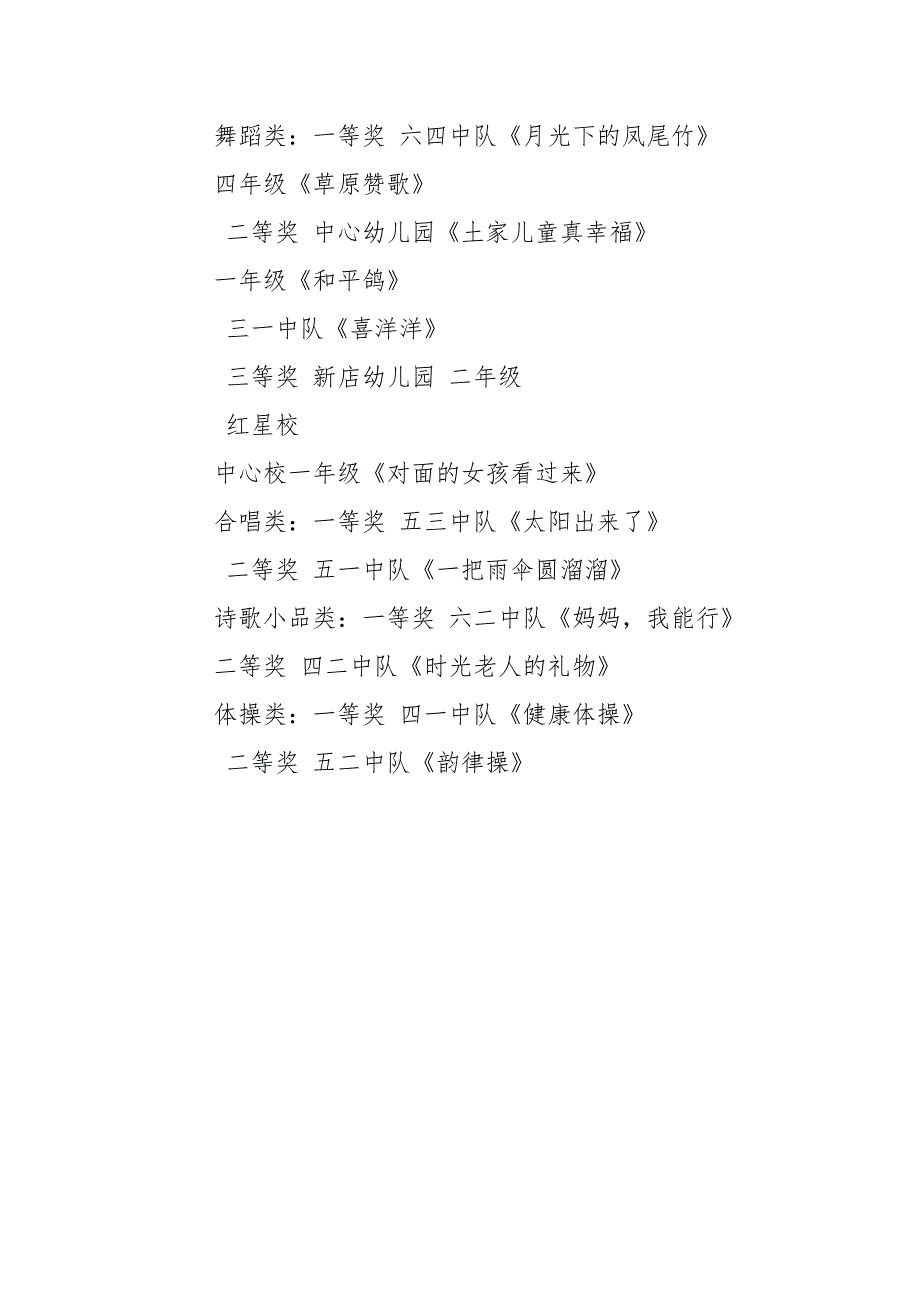 舞蹈类：一等奖 六四中队《月光下的凤尾竹》
四年级《草原赞歌》
二等奖 中心幼儿园《土家儿童真幸福》
一年级《和平鸽》
三一中队《喜洋洋》
三等奖 新店幼儿园 二年级
红星校
中心校一年级《对面的女孩看过来》
合唱类：一等奖 五三中队《太阳出来了》
二等奖 五一中队《一把雨伞圆溜溜》
诗歌小品类：一等奖 六二中队《妈妈，我能行》
二等奖 四二中队《时光老人的礼物》
体操类：一等奖 四一中队《健康体操》
二等奖 五二中队《韵律操》